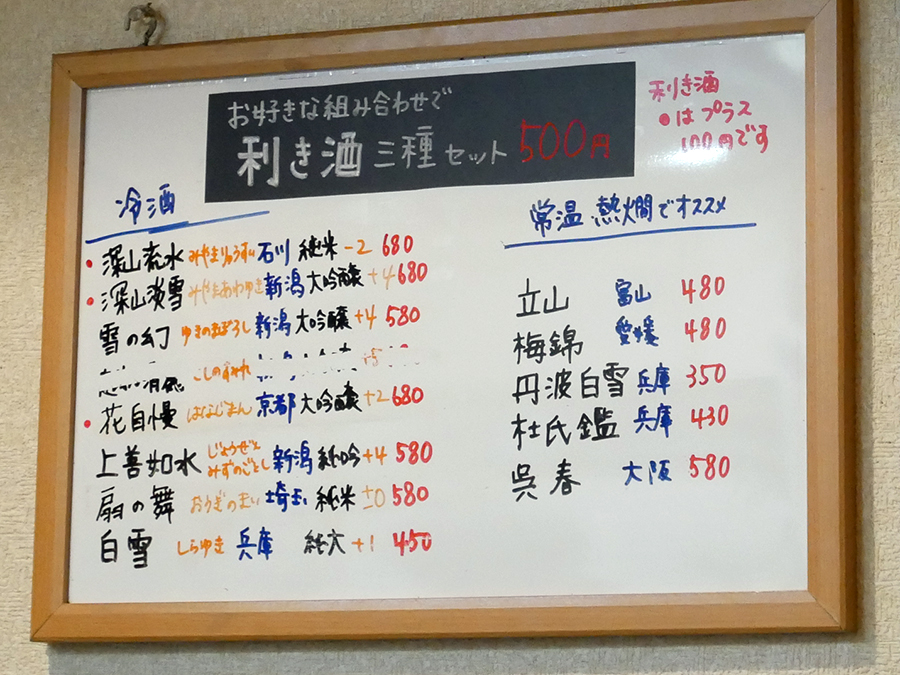 お好きな組み合わせで
利き酒 三種 セット 500円
利き酒
●はプラス
100円です
冷酒
● 深山流水 みやまりゅうすい 石川 純米 -2 680
● 深山淡雪 みやまあわゆき 新潟 大吟醸 +4 680
雪の幻 ゆきのまぼろし 新潟 大吟醸 +4 580
● 花自慢 はなじまん 京都 大吟醸 +2 680
上善如水 じょうぜと みずのごとし 新潟 純吟 +4 580
扇の舞 おうぎのまい 埼玉 純米 ±0 580
白雪 しらゆき 兵庫 +1 450
常温 熱燗でオススメ
立山 富山 480
梅錦 愛媛 480
丹波白雪 兵庫 350
杜氏鑑 兵庫 430
呉春 大阪 580